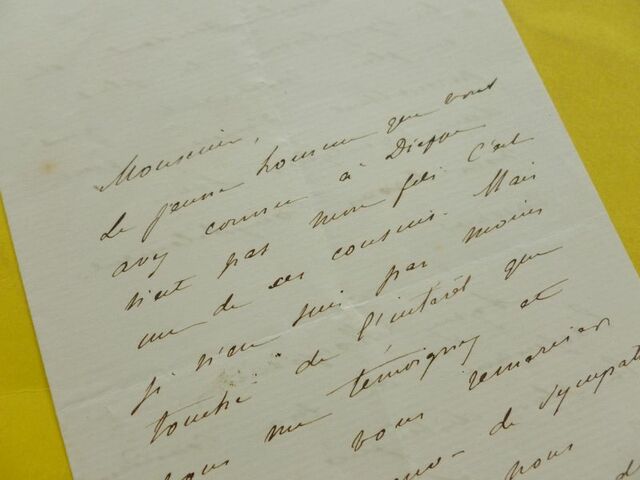 Monsieur,
Le jeune homme que vous
avez connu à Dieppe
n'est pas mon fils c'est
un de ses cousins. Mais
je n'en suis pas moins
touché de l'intérêt que
vous me témoignez et
vous remercier
de sympat
nous